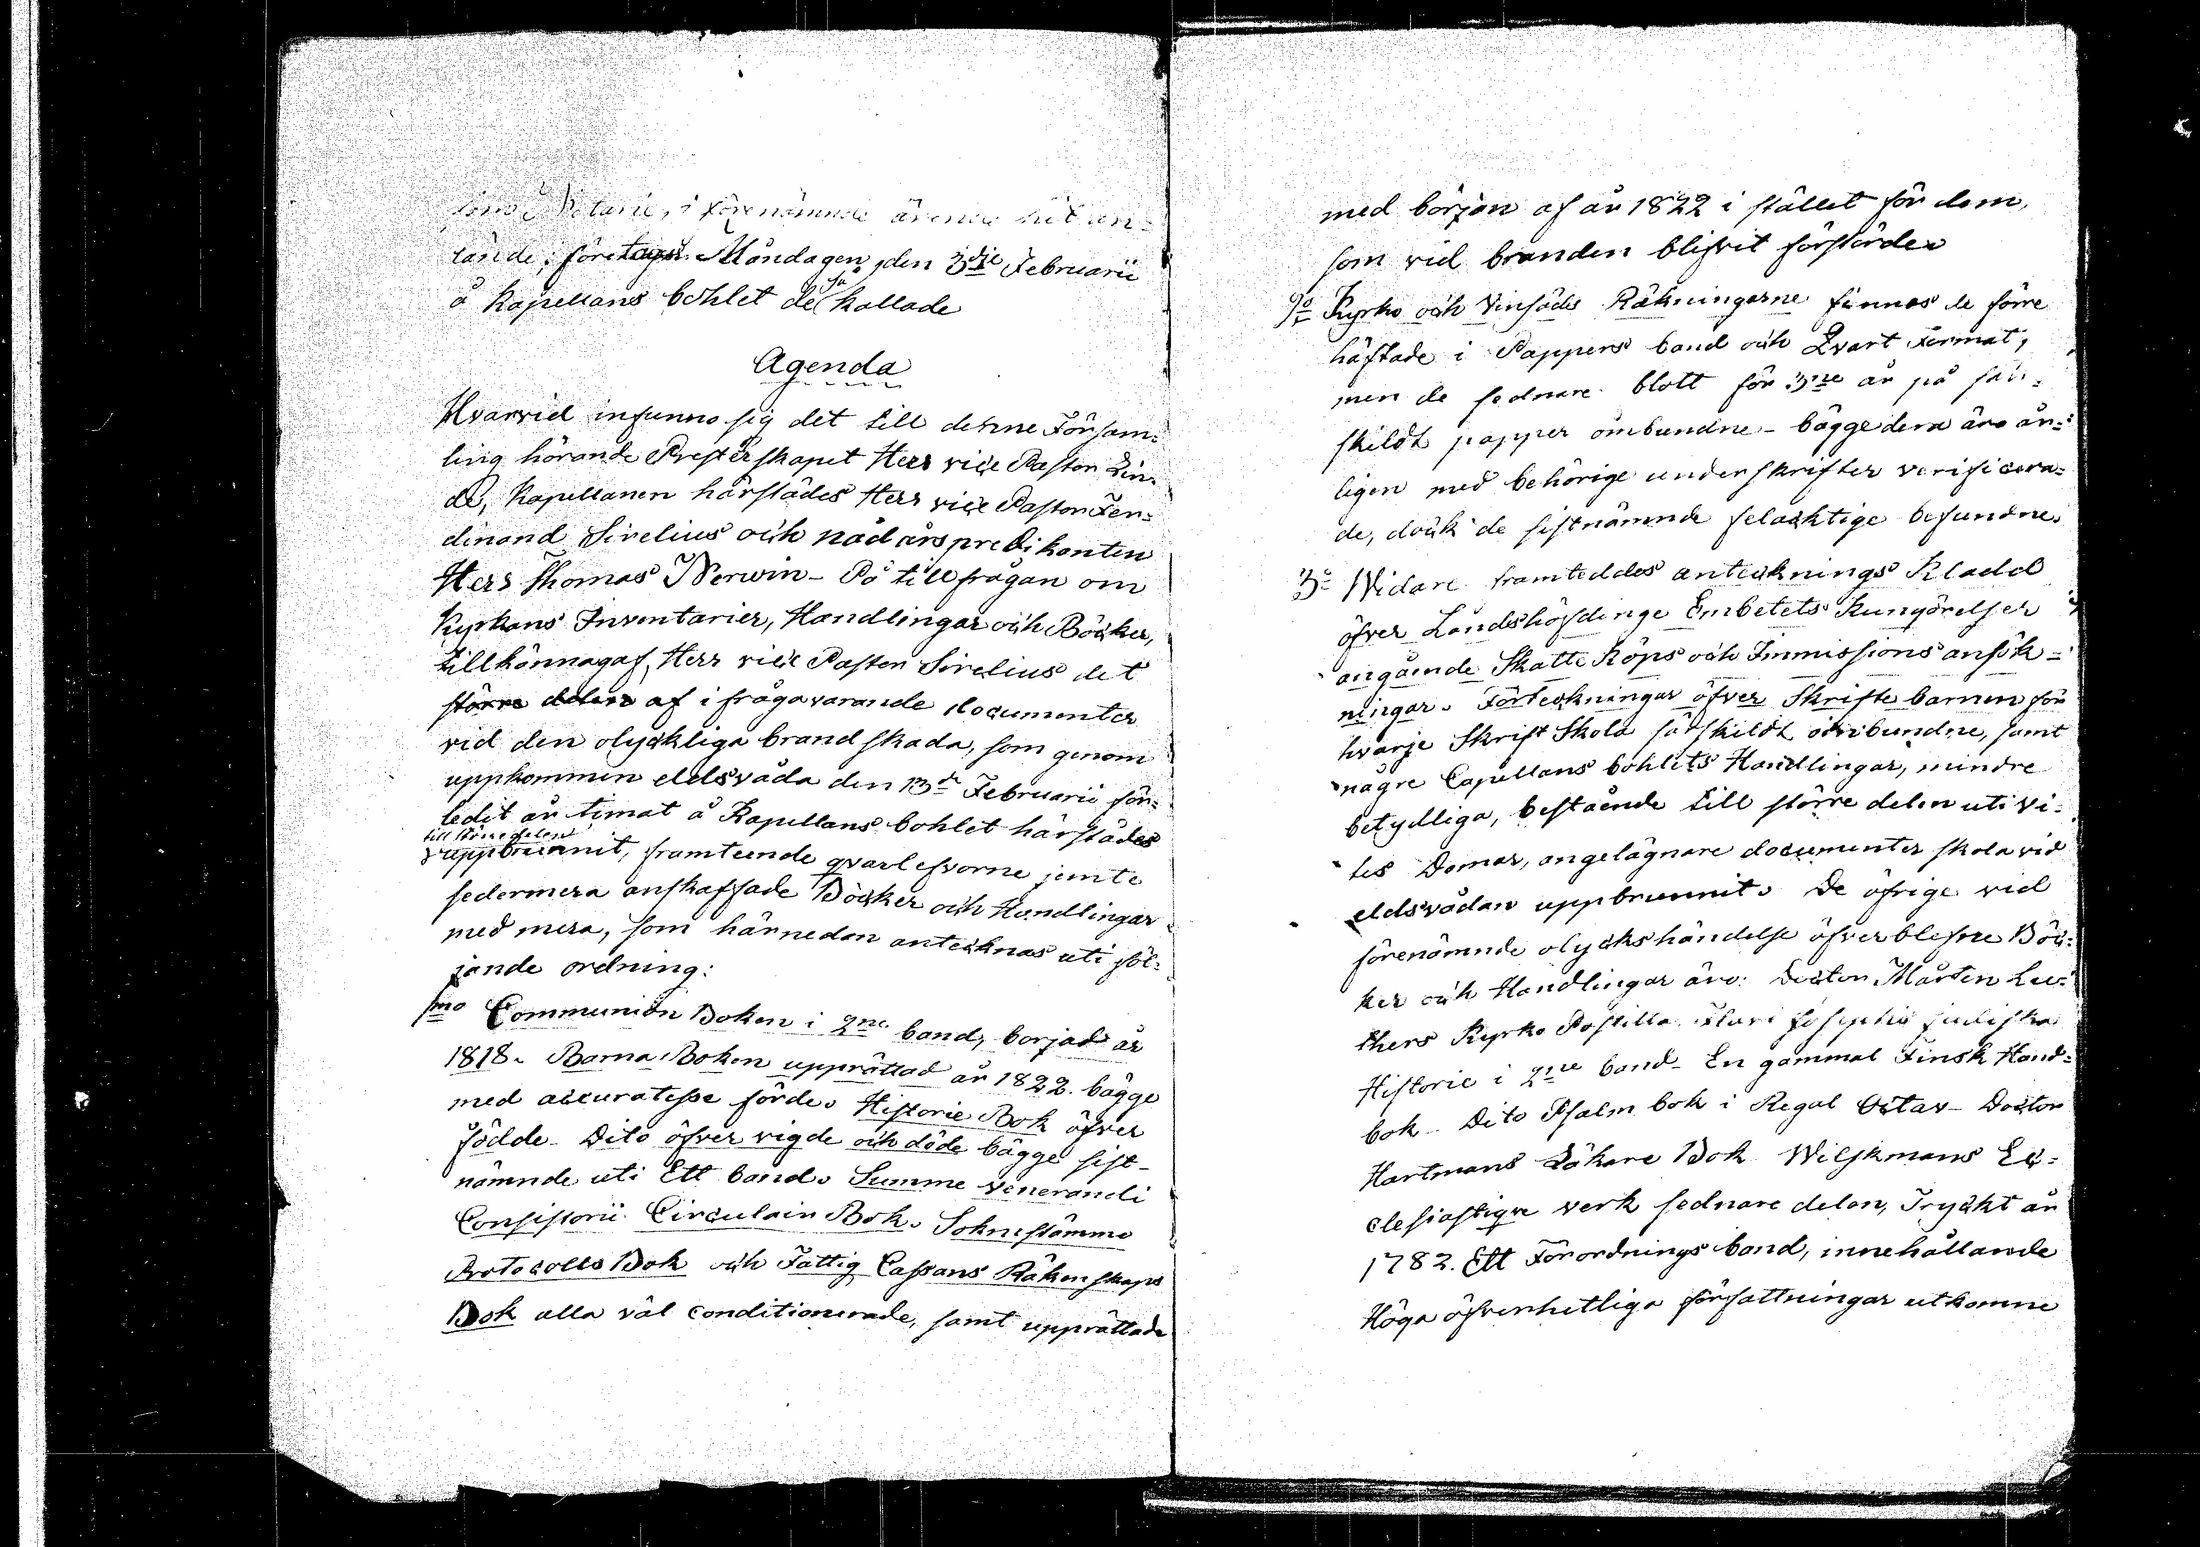 som Notarie, i förenämnde ärende hit an-
lände, företogs Måndagen, den 3die Februarii
å Kapellans bohlet de så kallade
Agenda
Hvarvid infunno sig det till denne Försam=
ling hörande Presterskapet Herr vice Pastor Lin=
de, Kapellanen härstädes Herr vice Pastor Fer=
dinand Sirelius och nådårspredikanten
Herr Thomas Werwin - På tillfrågan om
Kyrkans Inventarier, Handlingar och Böcker,
tillkännagaf, Herr vice Pastor Sirelius det
större delen af i frågavarande documenter
vid den olyckliga brandskada, som genom
uppkommen eldsvåda den 13de Februarii för=
ledit år timat å Kapellans bohlet härstädes
till större delen
uppbrunnit, framteende qvarlefvorne jemte
sedermera anskaffade Böcker och Handlingar
med mera, som härnedan antecknas uti föl=
jande ordning:
1mo Communion Boken i 2ne band, borjad år
1818. Barna Boken upprättad år 1822. bägge
med accuratesse förde. Historie Bok öfver
födde - Dito öfver vigde och döde bägge sist-
nämnde uti Ett band. Summe venerandi
Consistorii Circulair Bok. Sokne stämmo
Protocolls Bok och Fattig Cassans Räkenskaps
Bok alla väl conditionerade, samt upprättade
med början af år 1822 i stället för dem,
som vid branden blifvit förstörde.
2o Kyrko och Vinsäds Räkningarne finnas de förre
häftade i Pappers band och Qvart Format,
men de sednare blott för 3ne år på sär=
skildt papper ombundne - bäggedera äro år=
ligen med behörige underskrifter verificera=
de, dock de sistnämnde felacktige befundne.
3o Widare framteddes antecknings Kladd
öfver Landshöfdinge Embetets Kungörelser
angående Skatte Köps och Immissions ansök=
ningar. Förteckningar öfver Skrifte barnen för
hvarje Skrift Skola särskildt obundne, samt
någre Capellans bohlets Handlingar, mindre
betydliga, bestående till större delen uti vi=
tes Domar, angelägnare documenter skola vid
eldsvådan uppbrunnit. De öfrige vid
förenämnde olyckshändelse öfverblefne Böc=
ker och Handlingar äro: Doctor Mårten Lu=
thers Kyrko Postilla. Flavi Josephi judiska
Historie i 2ne band - En gammal Finsk Hand=
bok - Dito Psalm bok i Regal Octav - Doctor
Hartmans Läkare Bok Wilskmans Ec=
clesiastiqve verk sednare delen, Tryckt år
1782. Ett Förordnings band, innehållande
Höga öfverhetliga författningar utkomne